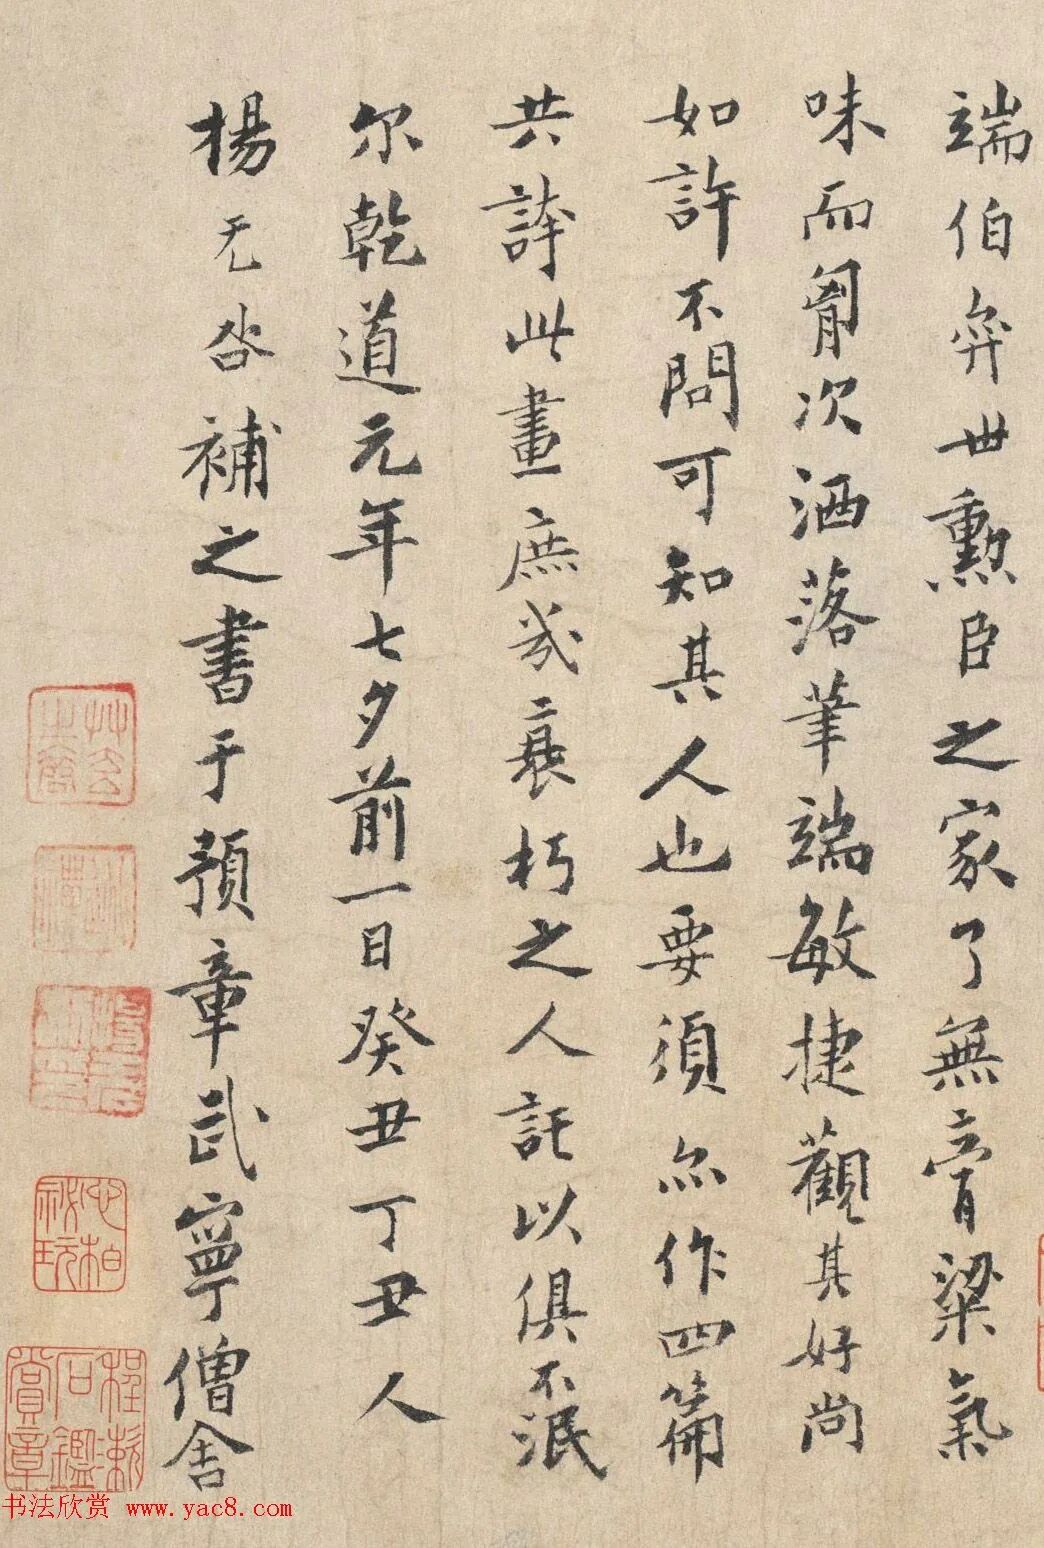 端伯弈世勲臣之家了無膏粱氣
味而胷次洒落筆端敏捷觀其好尚
如許不問可知其人也要須亦作四篇
共誇此畫庶幾衰朽之人託以俱不泯
尔乾道元年七夕前一日癸丑丁丑人
楊无咎補之書于預章武寧僧舍
程楨
石鑑
賞章
书法欣赏 www.yac8.com